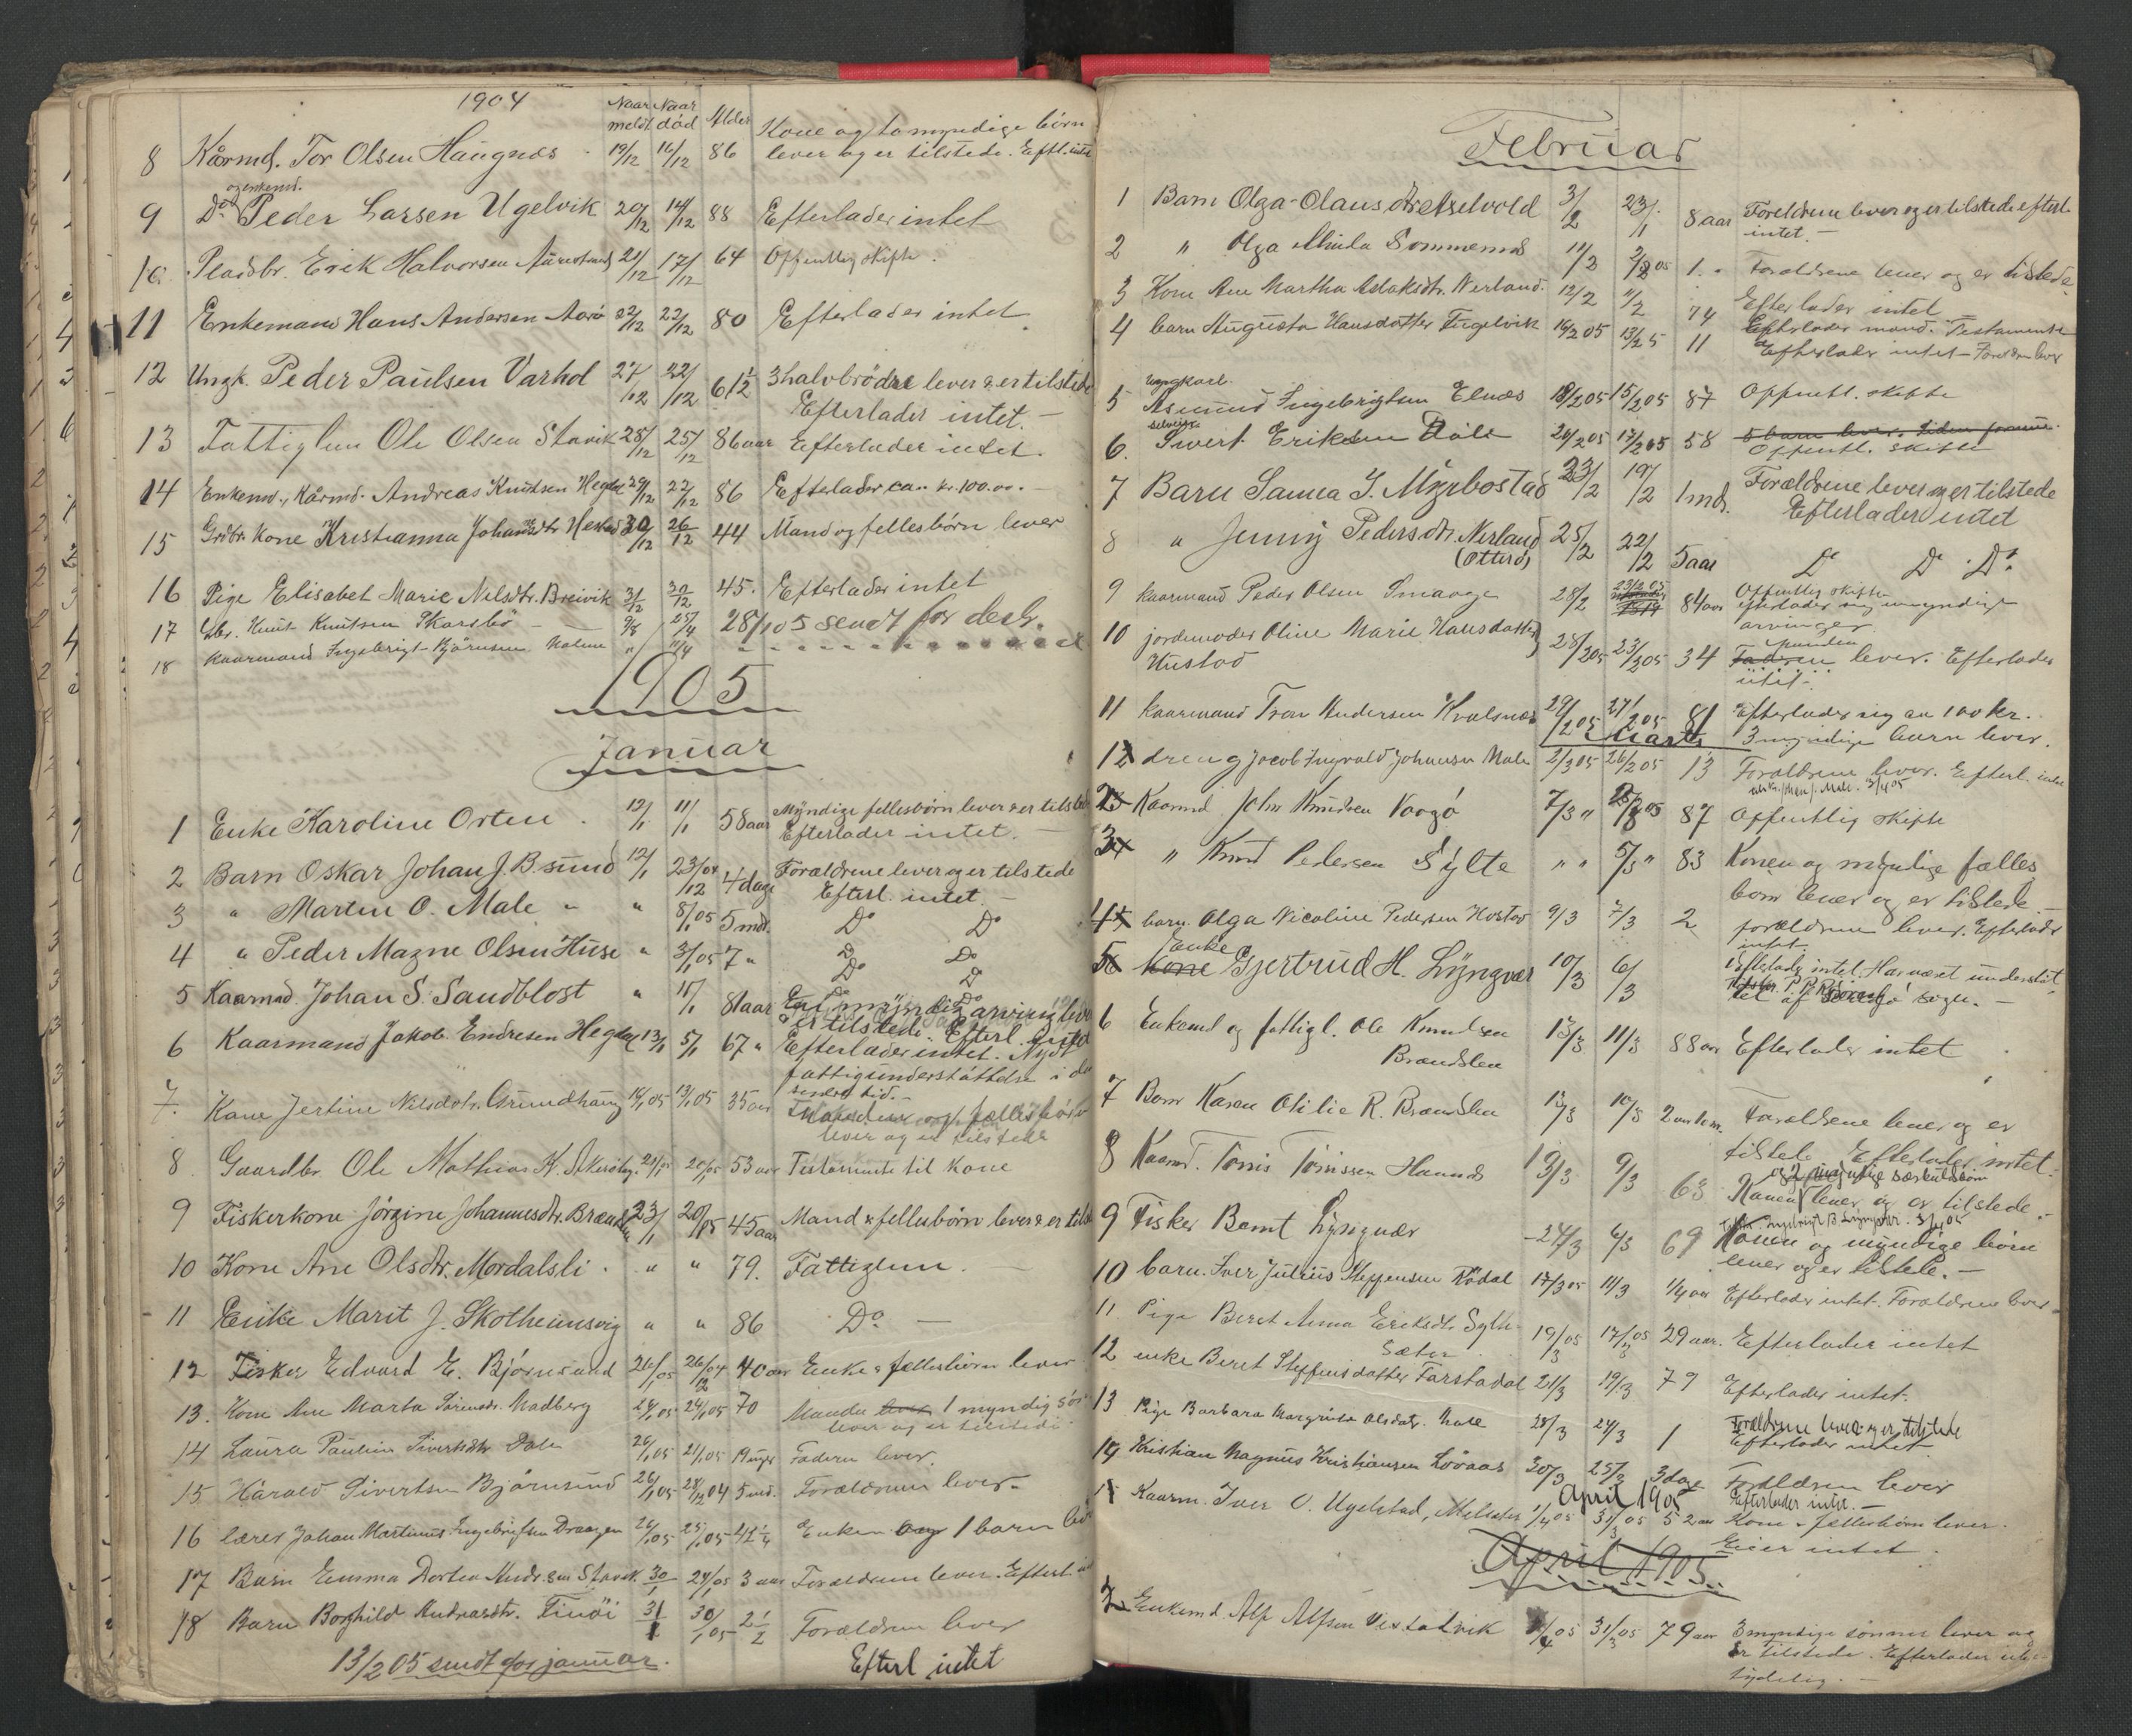 1904
Naar meldt Naar död Alder
Kone og to myndige börn
8 Kårmd. Tor Olsen Haugnæs 19/12 16/12 86 lever og er tilstede. Eftl. intet
og enkemd.
9 Do Peder Larsen Ugelvik 20/12 14/12 88 Efterlader intet
10. Pladsbr. Erik Halvorsen 21/12 17/12 64 Offentlig skifte.
11 Enkemand Hans Andersen Aarö 22/12 22/12 80 Efterlader intet
12 Ungk. Peder Paulsen Varhol 27/12 22/12 61 1/2 3 halvbrödre lever & er tilstede
Efterlader intet. -
13 Fattiglem Ole Olsen Stavik 28/12 25/12 86 aar Efterlader intet.
14 Enkemd., Kårmd. Andreas Knutsen Hegdal 29/12 22/12 86 Efterlader ca. kr. 100.00.
15 Grdbr. kone Kristianna Johansdtr Hestad 30/12 26/12 44 Mand og fellesbörn lever
16 Pige Elisabet Marie Nilsdtr. Breivik 31/12 30/12 45. Efterlader intet
17 Gbr. Knut Knutsen Skarsbö 28/1 05 sendt for decb.
18 Kaarmand Ingebrigt Björnsen Malme
1905
Januar
1 Enke Karoline Orten. 12/1 11/1 58 aar Myndige fellesbörn lever & er tilstede
Efterlader intet. -
2 Barn Oskar Johan J. B.sund 12/1 23/12 04 4 dage Forældrene lever og er tilstede
Efterl. intet. -
3 " Martin O. Male " " 8/1 05 5 md. Do Do
4 " Peder Magne Olsen Huse " 3/1 05 7 " Do Do
Do Do
5 Kaarmd. Johan S. Sandblost " 11/1 81 aar En myndig arving lever
& er tilstede. Efterl. intet
6 Kaarmand Jakob Endresen Hegdal 13/1 5/1 67 " Efterlader intet. Nydt
fattigunderstöttelse i de
senere tid. -
7. Kone Jertine Nilsdtr. Grundhaug 16/1 05 13/1 05 35 aar Manden og fællesbörn
lever og er tilstede
8 Gaardbr. Ole Mathias K. 21/1 05 20/1 05 53 aar Testamente til kone
9 Fiskerkone Jörgine Johannesdtr. Brændslen 23/1 20/1 05 45 aar Mand & fellesbörn lever & er tilst
10 Kone Ane Olsdtr. Mordalsli. " " 79. Fattiglem. -
11 Enke Marit J. Skotheimsvig " " 86 Do -
12 Fisker Edvard E. Björnsund 26/1 05 26/12 04 40 aar Enke & fellesbörn lever
13. Kone Ane Marta Sörensdr. Madberg 26/1 05 24/1 05 70 Manden lever 1 myndig sön
lever og er tilstede
14 Laura Pauline Sivertsdtr Dale 26/1 05 21/1 05 19 uger Faderen lever.
15 Harald Sivertsen Björnsund 26/1 05 28/12 04 5 md. Forældrene lever.
16 lærer Johan Martinus Ingebrigtsen Draagen 26/1 05 25/1 05 42 1/4 Enken og 1 barn lever
17 Barn Emma Dortea Andr.sen Stavik. 30/1 24/1 05 3 aar Forældrene lever. Efterl. int
18 Barn Borghild Andreasdtr. Finöi 31/1 30/1 05 2 1/2 Forældrene lever
Efterl intet
13/2 05 sendt for januar.
Februar
1 Barn Olga Olausdtr Aselvold 3/2 23/1 8 aar Foreldrene lever og er tilstede efterl.
intet. -
2 " Olga Alvida Sommernes 11/2 2/2 05 1 " Forældrene lever og er tilstede
3 Kone Ane Martha Aslaksdtr. Nerland. 12/2 11/2 74 Efterlader intet
Efterlader mand. Testamente
4 barn Augusta Hansdatter Fugelvik 16/2 05 13/2 5 11 Efterlader intet - Foreldre lever
ungkarl.
5 Asmund Ingebrigtsen Elnæs 18/2 05 15/2 05 87 Offentl. skifte
selveier
6. Sivert Eriksen Dale 20/2 05 17/2 05 58 5 barn lever.
Offentl. skifte
7 Barn Sanna J. Myrbostad 23/2 19/2 1 md. Forældrene lever og er tilstede
Efterlader intet
8 " Jenny Pedersdtr. Nerland 25/2 22/2 5 aar Do Do Do
(Otterö)
9 kaarmand Peder Olsen Smaage 28/2 23/2 05 84 aar Offentlig skifte
efterlader sig umyndige
arvinger
10 jordemoder Oline Marie Hansdatter 28/2 05 23/2 05 34 Manden
Hustad Faderen lever. Efterlader
intet.
11 kaarmand Tron Andersen Kvalsnes 29/2 05 27/2 05 81 Efterlader sig ca 100 kr.
3 myndige barn lever.
Marts
1 dreng Jacob Ingvald Johansen Male 2/3 05 26/2 05 13 Forældrene lever. Efterl. intet
2 Kaarmd John Knudsen Vaagö 7/3 " 87 Offentlig skifte
3 " Knud Pedersen Sylte " " 5/3 " 83 Konen og myndige fælles
born lever og er tilstede -
4 barn Olga Nicoline Pedersen Hostad 9/3 7/3 2 forældrene lever. Efterlader
intet
Enke
5 Kone Gjertrud H. Lyngvær 10/3 6/3 Efterlader intet. Har været understöt-
tet af sogn. -
6 Enkemd og fattigl. Ole Knudsen 13/3 11/3 88 aar Efterlader intet
Brændslen
7 Barn Karen Otilie R. Brændslen 13/3 10/3 2 aar Forældrene lever og er
tilstede Efterlader intet.
og 2 myndige særkuldsbörn
8 Kaarmd. Tönnis Tönnissen Haunes 19/3 9/3 63 Konen lever og er tilstede. -
9 Fisker Bernt Lyngvær 24/3 6/3 69 Konen og myndige börn
lever og er tilstede. -
10 barn. Iver Julius Steffensen Rödal 17/3 05 11/3 1/4 aar Efterlader intet. Forældrene lever
11 Pige Beret Anna Eriksdt. Sylte 19/3 05 17/3 05 29 aar. Efterlader intet
Sæter
12 enke Beret Steffensdatter Farstadal 21/3 19/3 79 Efterlader intet.
13 Pige Barbara Margrete Olsdatr. Male 28/3 24/3 1 Forældrene lever og er tilstede
Efterlader intet
14 Kristian Magnus Kristiansen Lövaas 30/3 25/3 3 dage Forældrene lever
Efterlader intet. -
April 1905
1 Kaarm. Iver O. Ugelstad, 1/4 05 31/3 05 52 aar Kone & fellesbörn lever.
Eier intet.
April 1905
2 Enkemd. Alf Alfsen Vestadvik 1/4 05 31/3 05 79 aar 3 myndige sönner lever og
er tilstede. Efterlader ube-
tydelig. -